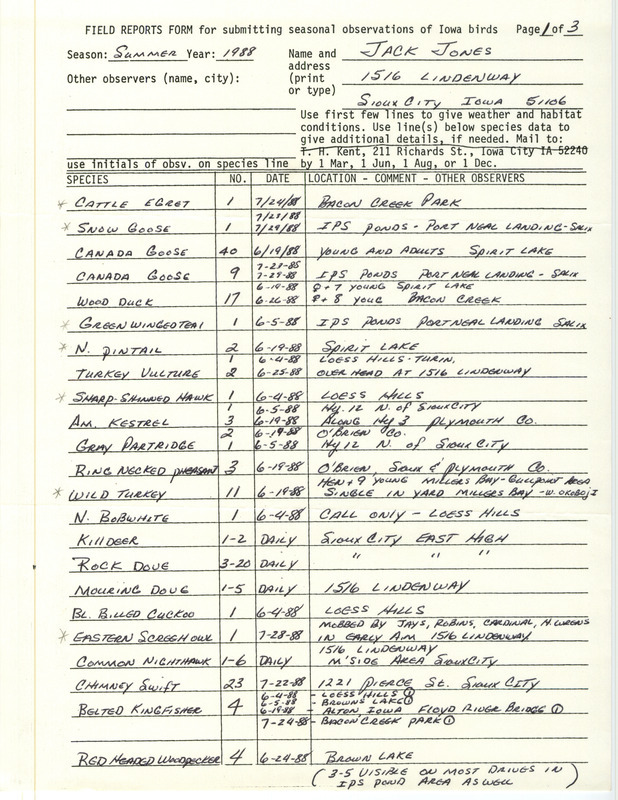 FIELD REPORTS FORM for submitting seasonal observations of Iowa birds Page 1 of 3
Season: Summer Year: 1988 Name and JACK JONES
address
Other observers (name, city): (print 1516 LINDENWAY
or type)
SIOUX CITY IOWA 51106
Use first few lines to give weather and habitat
conditions. Use line(s) below species data to
give additional details, if needed. Mail to:
T. H. Kent, 211 Richards St., Iowa City IA 52240
use initials of obsv. on species line by 1 Mar, 1 Jun, 1 Aug, or 1 Dec.
SPECIES NO. DATE LOCATION - COMMENT - OTHER OBSERVERS
* CATTLE EGRET 1 7/24/88 BACON CREEK PARK
7/23/88
* SNOW GOOSE 1 7/29/88 IPS PONDS - PORT NEAL LANDING - SALIX
CANADA GOOSE 40 6/19/88 YOUNG AND ADULTS SPIRIT LAKE
7-23-88
CANADA GOOSE 9 7-29-88 IPS PONDS PORT NEAL LANDING - SALIX
6-19-88 ♀+7 YOUNG SPIRIT LAKE
WOOD DUCK 17 6-26-88 ♀+8 YOUG BACON CREEK
* GREEN WINGED TEAL 1 6-5-88 IPS PONDS PORT NEAL LANDING SALIX
* N. PINTAIL 2 6-19-88 SPIRIT LAKE
1 6-4-88 LOESS HILLS - TURIN,
TURKEY VULTURE 2 6-25-88 OVER HEAD AT 1516 LINDENWAY
* SHARP-SHINNED HAWK 1 6-4-88 LOESS HILLS
1 6-5-88 Hy. 12 N. OF SIOUX CITY
AM. KESTREL 3 6-19-88 ALONG Hy 3 PLYMOUTH CO.
2 6-19-88 O'BRIEN CO.
GRAY PARTRIDGE 1 6-5-88 Hy 12 N. OF SIOUX CITY
RING NECKED PHEASANT 3 6-19-88 O'BRIEN, SIOUX & PLYMOUTH CO.
HEN + 9 YOUNG MILLERS BAY - GULLPOINT AREA
* WILD TURKEY 11 6-19-88 SINGLE IN YARD MILLERS BAY - W. OKOBOJI
N. BOBWHITE 1 6-4-88 CALL ONLY - LOESS HILLS
KILLDEER 1-2 DAILY SIOUX CITY EAST HIGH
ROCK DOVE 3-20 DAILY " " "
MOURING DOVE 1-5 DAILY 1516 LINDENWAY
BL. BILLED CUCKOO 1 6-4-88 LOESS HILLS
MOBBED BY JAYS, ROBINS, CARDINAL, H. WRENS
* EASTERN SCREGH OWL 1 7-28-88 IN EARLY AM 1516 LINDENWAY
1516 LINDENWAY
COMMON NIGHTHAWK 1-6 DAILY M'SIDE AREA SIOUX CITY
CHIMNEY SWIFT 23 7-22-88 1221 PIERCE ST. SIOUX CITY
6-4-88 - LOESS HILLS ①
6-5-88 - BROWNS LAKE ①
BELTED KINGFISHER 4 6-19-88 - ALTON, IOWA FLOYD RIVER BRIDGE ①
7-24-88 - BACON CREEK PARK ①
RED HEADED WOODPECKER 4 6-24-88 BROWN LAKE
(3-5 VISIBLE ON MOST DRIVES IN
IPS POND AREA AS WELL)